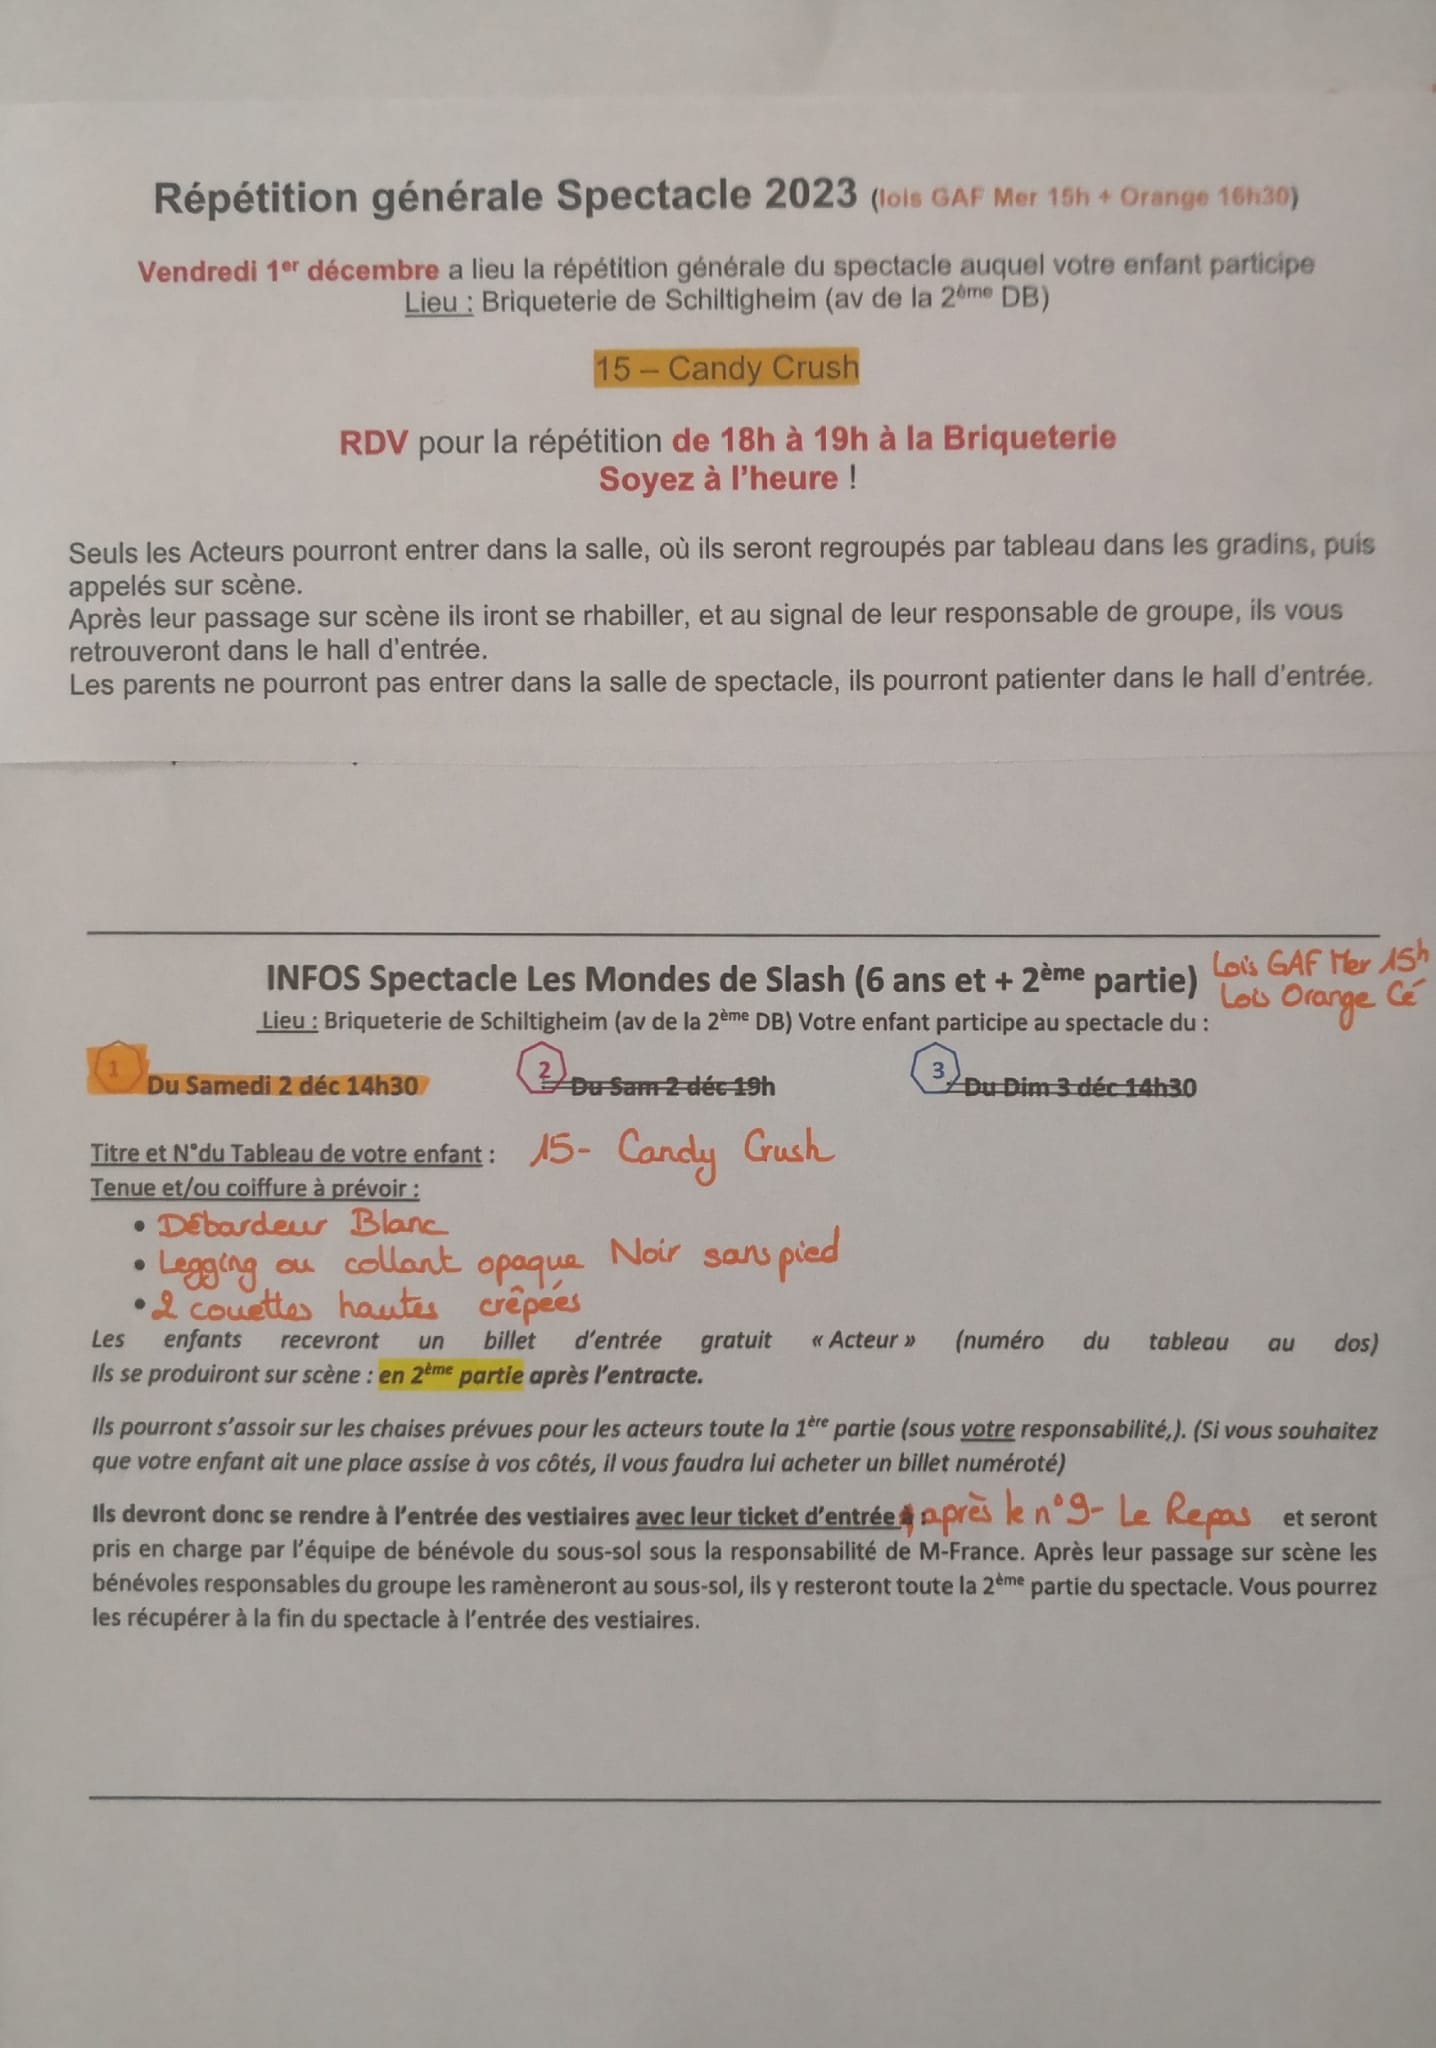 Répétition générale Spectacle 2023 (lois GAF Mer 15h + Orange 16h30)
Vendredi 1er décembre a lieu la répétition générale du spectacle auquel votre enfant participe
Lieu : Briqueterie de Schiltigheim (av de la 2ème DB)
15 – Candy Crush
RDV pour la répétition de 18h à 19h à la Briqueterie
Soyez à l'heure !
Seuls les Acteurs pourront entrer dans la salle, où ils seront regroupés par tableau dans les gradins, puis
appelés sur scène.
Après leur passage sur scène ils iront se rhabiller, et au signal de leur responsable de groupe, ils vous
retrouveront dans le hall d'entrée.
Les parents ne pourront pas entrer dans la salle de spectacle, ils pourront patienter dans le hall d'entrée.
INFOS Spectacle Les Mondes de Slash (6 ans et + 2ème partie) Loïs GAF Mer 15h
Loïs Orange Cé
Lieu : Briqueterie de Schiltigheim (av de la 2ème DB) Votre enfant participe au spectacle du :
1 Du Samedi 2 déc 14h30 2 Du Sam 2 déc 19h 3 Du Dim 3 déc 14h30
Titre et N°du Tableau de votre enfant : 15- Candy Crush
Tenue et/ou coiffure à prévoir :
• Débardeur Blanc
• Legging ou collant opaque Noir sans pied
• 2 couettes hautes crêpées
Les enfants recevront un billet d'entrée gratuit « Acteur » (numéro du tableau au dos)
Ils se produiront sur scène : en 2ème partie après l'entracte.
Ils pourront s'assoir sur les chaises prévues pour les acteurs toute la 1ère partie (sous votre responsabilité,). (Si vous souhaitez
que votre enfant ait une place assise à vos côtés, il vous faudra lui acheter un billet numéroté)
Ils devront donc se rendre à l'entrée des vestiaires avec leur ticket d'entrée après le n°9- Le Repas et seront
pris en charge par l'équipe de bénévole du sous-sol sous la responsabilité de M-France. Après leur passage sur scène les
bénévoles responsables du groupe les ramèneront au sous-sol, ils y resteront toute la 2ème partie du spectacle. Vous pourrez
les récupérer à la fin du spectacle à l'entrée des vestiaires.